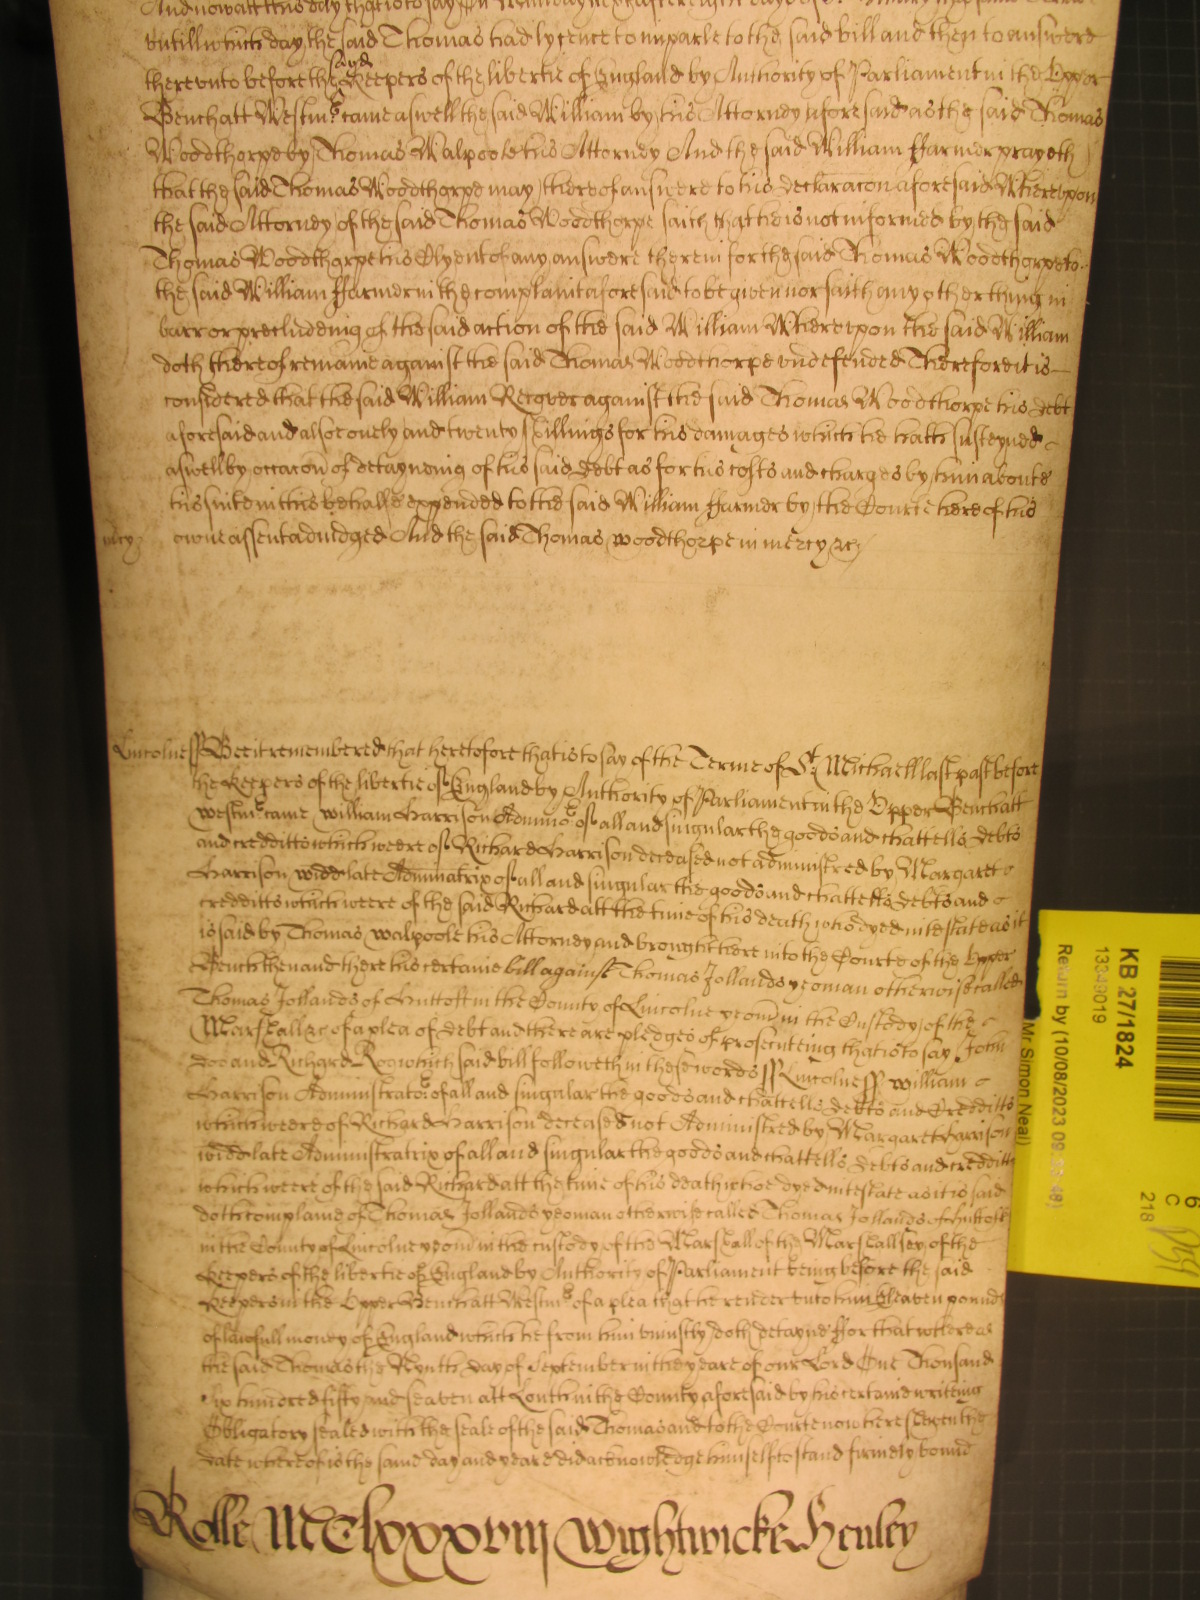 untill which day the said Thomas had lycence to imparle to the said bill and then to answere
thereunto before the said Keepers of the libertie of England by Authority of Parliament in the Upper
Bench att Westmr came aswell the said William by his Attorney aforesaid as the said Thomas
Woodthorpe by Thomas Walpoole his Attorney And the said William ffarmer prayeth
that the said Thomas Woodthorpe may thereof answere to his declaracon aforesaid Whereupon
the said Attorney of the said Thomas Woodthorpe saith that he is not informed by the said
Thomas Woodthorpe his Clyent of any answere therein for the said Thomas Woodthorpe to
the said William ffarmer in the complaint aforesaid to be given nor saith any other thing in
barr or precludeing of the said action of the said William Whereupon the said William
doth thereof remaine against the said Thomas Woodthorpe undefended Therefore it is
considered that the said William Recover against the said Thomas Woodthorpe his debt
aforesaid and alsoe and twenty shillings for his damages which he hath susteyned
aswell by occacon of detayneing of his said debt as for his costs and charges by him aboute
his suite in this behalfe expended to the said William ffarmer by the Courte here of his
owne assent adiudged And the said Thomas Woodthorpe in mercy &c
mcy
Lincolne ss Bee it remembered that heretofore that is to say of the Terme of St Michaell last past before
the Keepers of the libertie of England by Authority of Parliament in the Upper Bench att
Westmr came William Harrison Adminr of all and singular the goods and chattells debts
and credditts which weere of Richard Harrison deceased not administred by Margaret
Harrison widd late Adminatrix of all and singular the goods and chattells debts and
credditts which weere of the said Richard att the time of his death who dyed intestate as it
is said by Thomas Walpoole his Attorney and brought here into the Courte of the Upper
Bench then and there his certaine bill against Thomas Jollands yeoman otherwise called
Thomas Jollands of Huttoft in the County of Lincolne yeom in the Custody of the
Marshall &c of a plea of debt and there are pledges of prosecuteing that is to say John
Doe and Richard Roe which said bill followeth in these words ss Lincolne ss William
Harrison Administrator of all and singular the goods and chattells debts and Credditts
which weere of Richard Harrison deceased not Administred by Margaret Harrison
widd late Administratrix of all and singular the goods and chattells debts and credditts
which weere of the said Richard att the time of his death whoe dyed intestate as it is said
doth complaine of Thomas Jollands yeoman otherwise called Thomas Jollands of Huttoft
in the County of Lincolne yeom in the custody of the Marshall of the Marshallsey of the
Keepers of the libertie of England by Authority of Parliament being before the said
Keepers in the Upper Bench att Westmr of a plea that he render unto him Eleaven pounds
of lawfull money of England which he from him uniustly doth detayne ffor that whereas
the said Thomas the Nynth day of September in the yeare of our Lord One Thousand
six hundred fifty and seaven att Louth in the County aforesaid by his certaine writeing
Obligatory sealed with the seale of the said Thomas and to the Courte now here shewen the
date whereof is the same day and yeare did acknowledge himselfe to stand firmely bound
Rolle MClxxxviij Wightwicke Henley
KB 27/1824
13349019
Return by (10/08/2023
Mr Simon Neal)
6
C
218